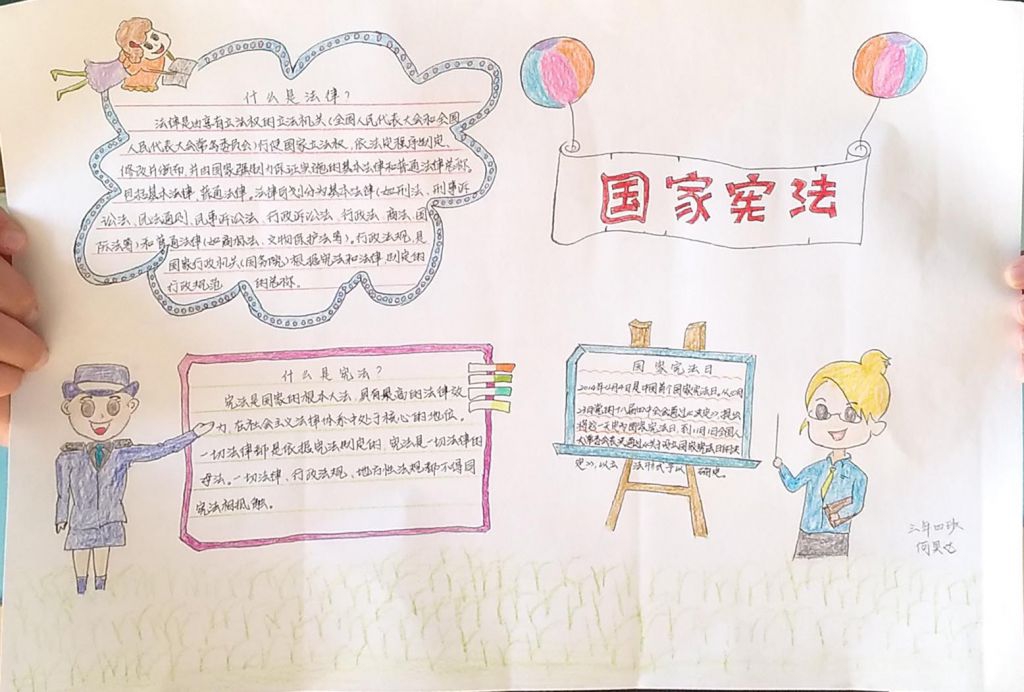 什么是法律？
法律是由享有立法权的立法机关（全国人民代表大会和全国
人民代表大会常务委员会）行使国家立法权，依法定程序制定、
修改并颁布，并由国家强制力保证实施的基本法律和普通法律总称。
包括基本法律、普通法律。法律可划分为基本法律（如刑法、刑事诉
讼法、民法通则、民事诉讼法、行政诉讼法、行政法、商法、国
际法等）和普通法律（如商标法、文物保护法等）。行政法规，是
国家行政机关（国务院）根据宪法和法律制定的
行政规范 的总称。
国家宪法
什么是宪法？
宪法是国家的根本大法，具有最高的法律效
力，在社会主义法律体系中处于核心的地位，
一切法律都是依据宪法制定的，宪法是一切法律的
母法。一切法律、行政法规、地方性法规都不得同
宪法相抵触。
国家宪法日
2014年12月4日是中国首个国家宪法日，从10月
23日党的十八届四中全会通过《决定》提出
将这一天定为国家宪法日，到11月1日全国人
大常委会表决通过《关于设立国家宪法日的决
定》，以立法形式予以 确定
三年四班